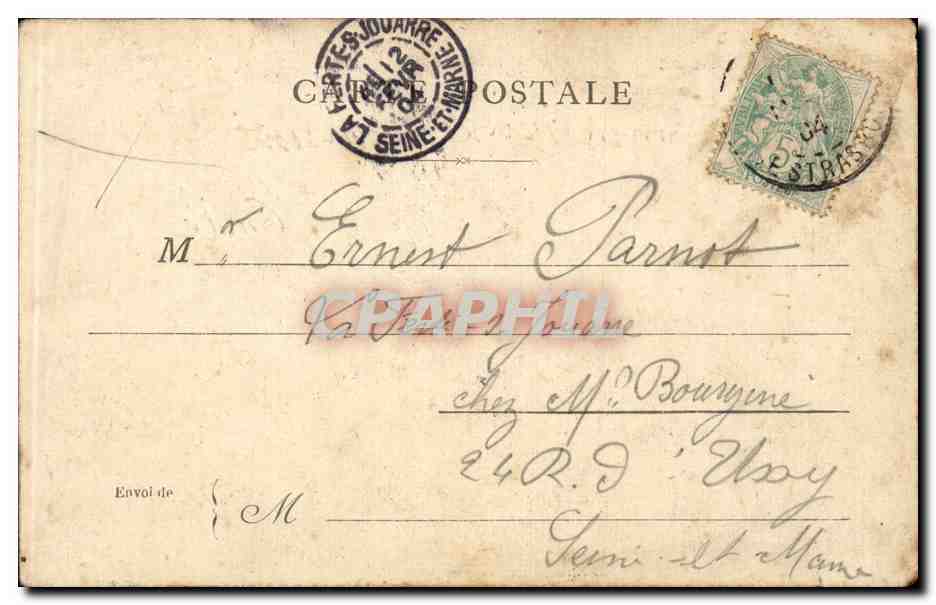 LA FERTE-S-JOUARRE
12
FEVR
04
SEINE-ET-MARNE
CARTE POSTALE
04
5
ESTRASMO
Mr Ernest Parnot
CPAPHIL
La Ferté-s-Jouarre
chez Mr Bourgine
24 R. d'Ussy
Envoi de M
Seine-et-Marne